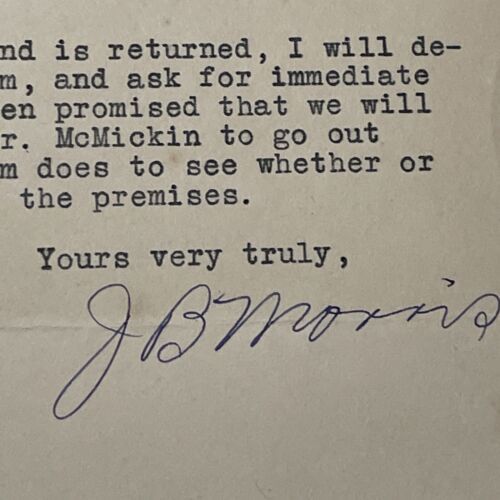 nd is returned, I will de-
m, and ask for immediate
en promised that we will
r. McMickin to go out
m does to see whether or
the premises.
Yours very truly,
J B Morris